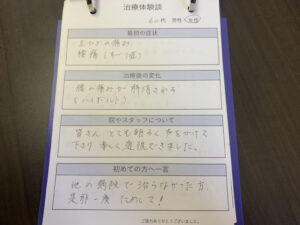 治療体験談
60代 男性・女性
最初の症状
左ひざの痛み
腰痛(キーン症)
治療後の変化
腰の痛みが解消される
(ハイボルト)
院やスタッフについて
皆さん とても明るく声をかけて
下さり 楽しく通院できました。
初めての方へ一言
他の病院で治らなかった方
是非一度 ためして!
ご協力ありがとうございました。